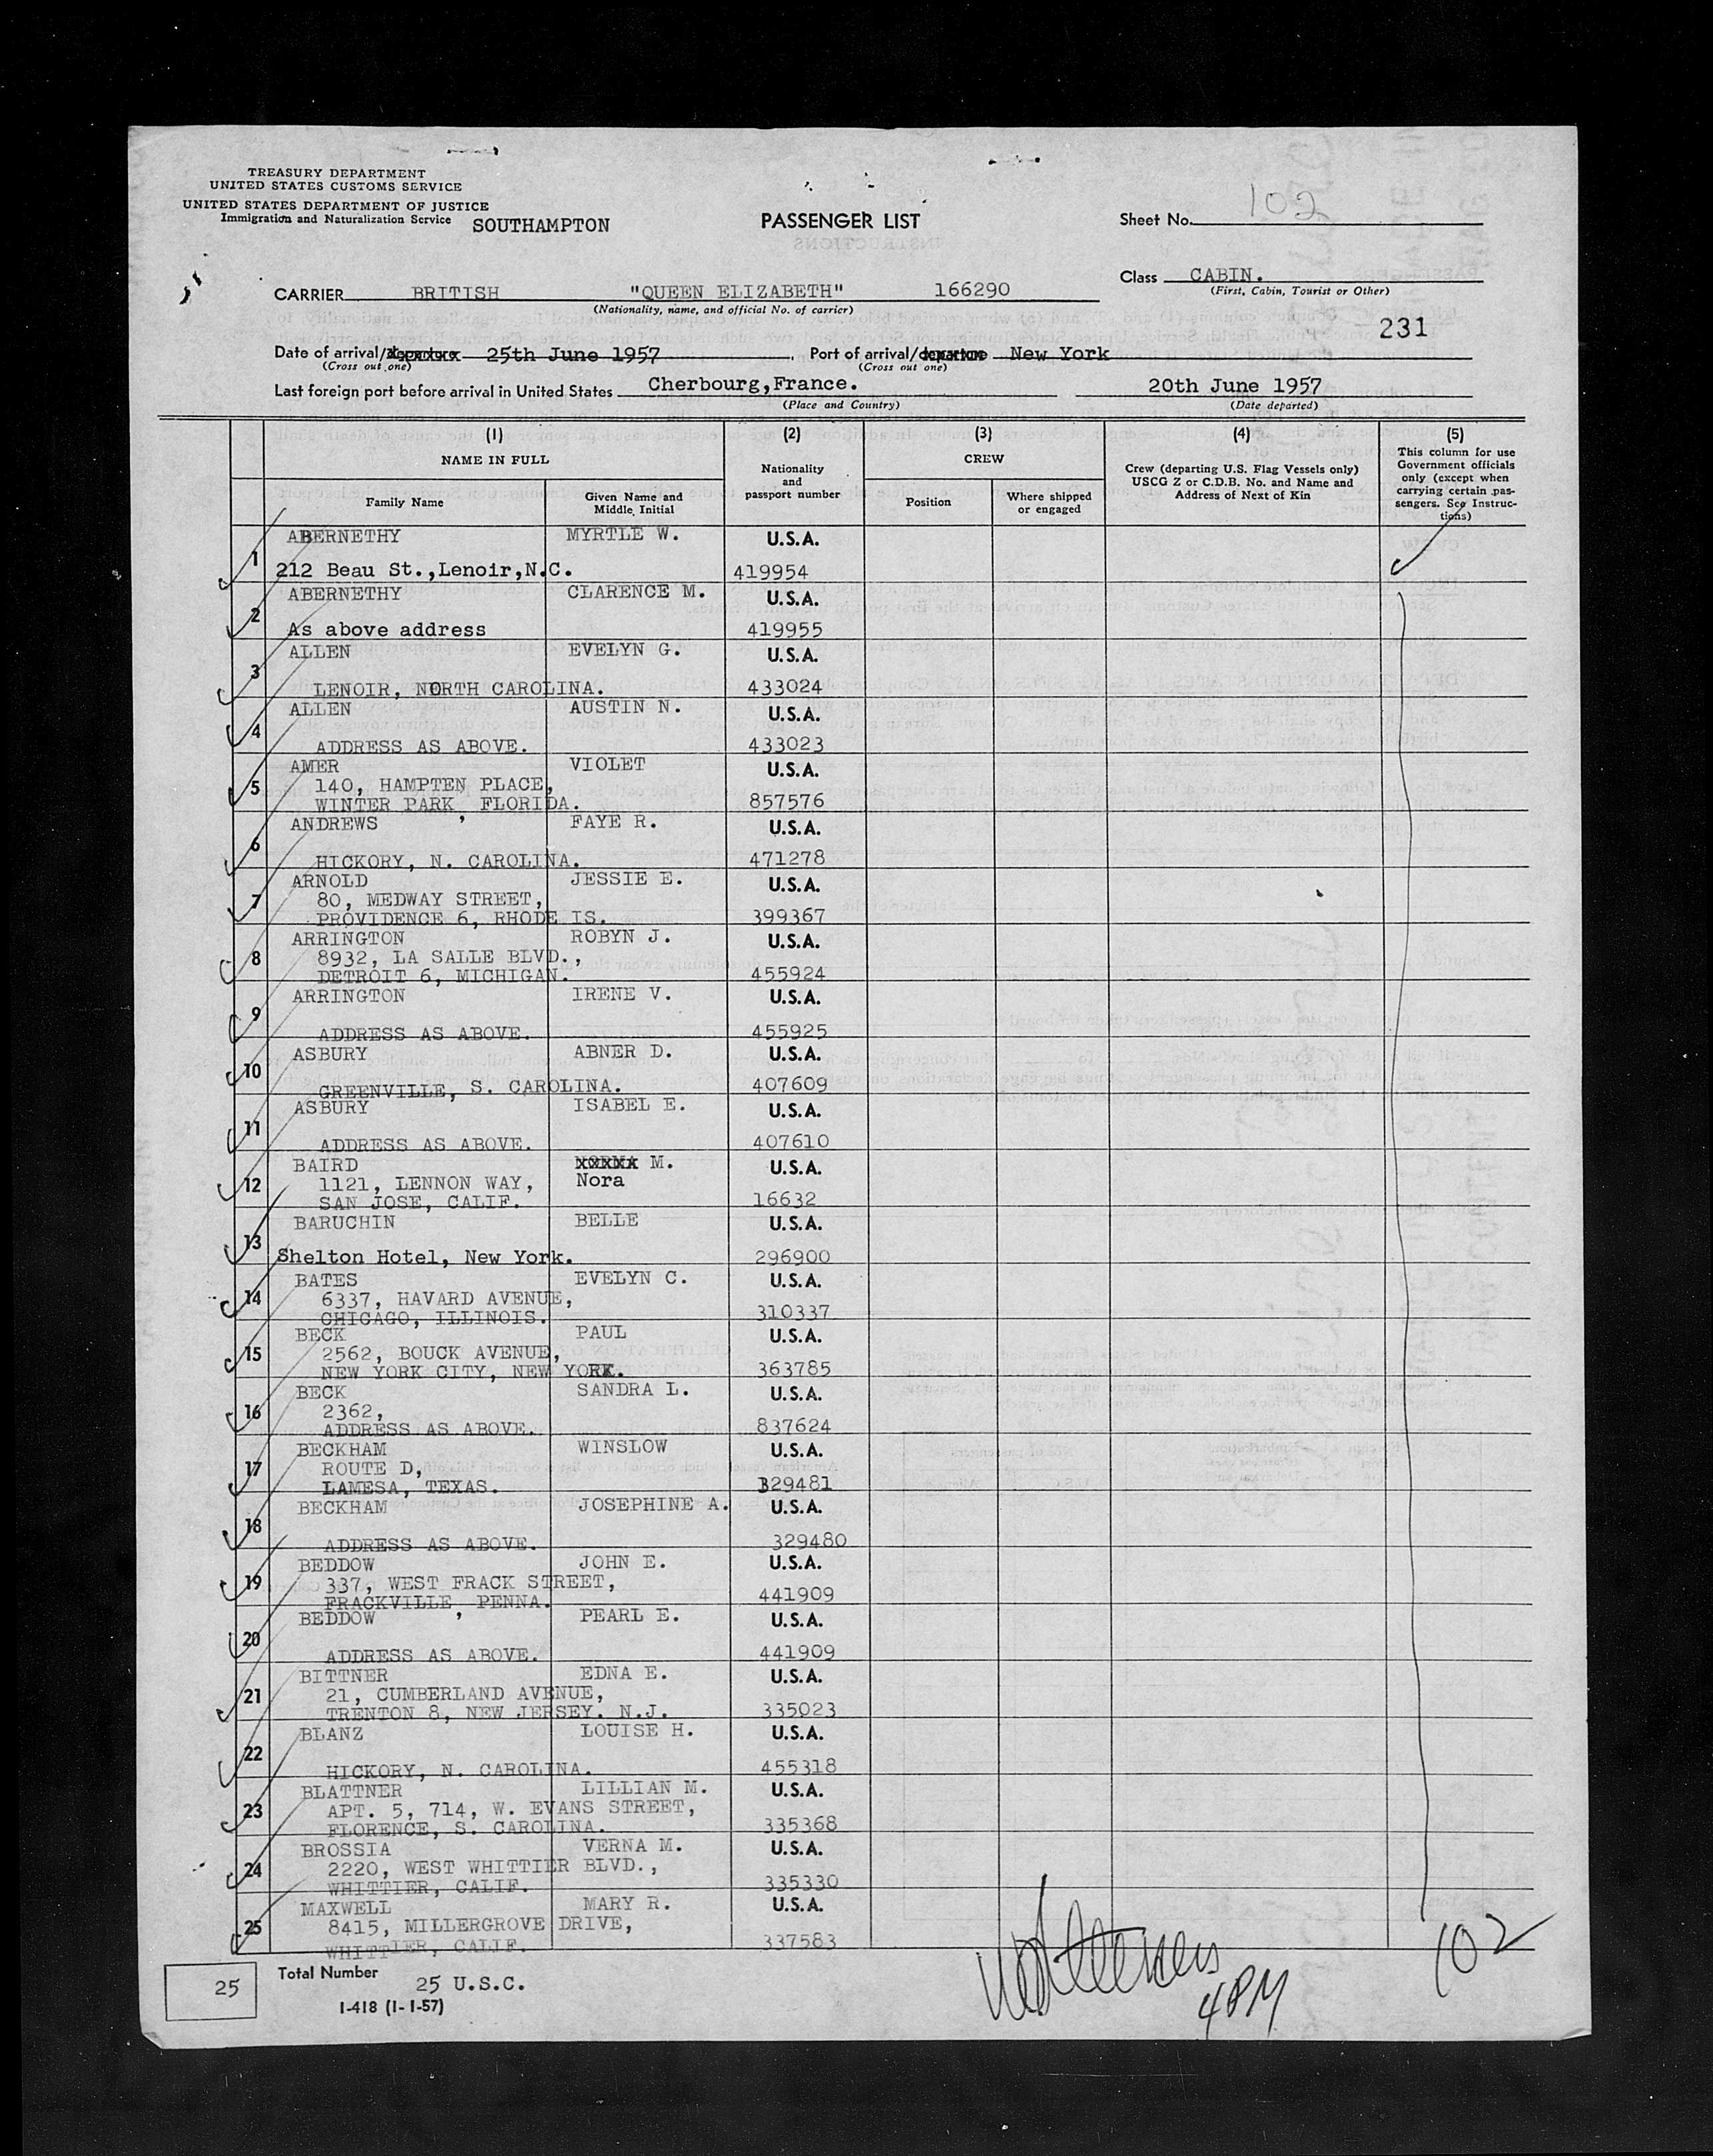 TREASURY DEPARTMENT
UNITED STATES CUSTOMS SERVICE
UNITED STATES DEPARTMENT OF JUSTICE
Immigration and Naturalization Service SOUTHAMPTON
PASSENGER LIST
Sheet No. 102
Class CABIN.
(First, Cabin, Tourist or Other)
CARRIER BRITISH "QUEEN ELIZABETH" 166290
(Nationality, name, and official No. of carrier)
231
Date of arrival/departure 25th June 1957, Port of arrival/departure New York
(Cross out one) (Cross out one)
Last foreign port before arrival in United States Cherbourg,France. 20th June 1957
(Place and Country) (Date departed)
(1) (2) (3) (4) (5)
NAME IN FULL
Family Name
Given Name and Middle Initial
Nationality and passport number
CREW
Position
Where shipped or engaged
Crew (departing U.S. Flag Vessels only) USCG Z or C.D.B. No. and Name and Address of Next of Kin
This column for use Government officials only (except when carrying certain passengers. See Instructions)
1 ABERNETHY MYRTLE W. U.S.A.
212 Beau St.,Lenoir,N.C. 419954
2 ABERNETHY CLARENCE M. U.S.A.
As above address 419955
3 ALLEN EVELYN G. U.S.A.
LENOIR, NORTH CAROLINA. 433024
4 ALLEN AUSTIN N. U.S.A.
ADDRESS AS ABOVE. 433023
5 AMER VIOLET U.S.A.
140, HAMPTEN PLACE,
WINTER PARK, FLORIDA. 857576
6 ANDREWS FAYE R. U.S.A.
HICKORY, N. CAROLINA. 471278
7 ARNOLD JESSIE E. U.S.A.
80, MEDWAY STREET,
PROVIDENCE 6, RHODE IS. 399367
8 ARRINGTON ROBYN J. U.S.A.
8932, LA SALLE BLVD.,
DETROIT 6, MICHIGAN. 455924
9 ARRINGTON IRENE V. U.S.A.
ADDRESS AS ABOVE. 455925
10 ASBURY ABNER D. U.S.A.
GREENVILLE, S. CAROLINA. 407609
11 ASBURY ISABEL E. U.S.A.
ADDRESS AS ABOVE. 407610
12 BAIRD NORMA M. U.S.A.
1121, LENNON WAY, Nora
SAN JOSE, CALIF. 16632
13 BARUCHIN BELLE U.S.A.
Shelton Hotel, New York. 296900
14 BATES EVELYN C. U.S.A.
6337, HAVARD AVENUE,
CHICAGO, ILLINOIS. 310337
15 BECK PAUL U.S.A.
2562, BOUCK AVENUE,
NEW YORK CITY, NEW YORK. 363785
16 BECK SANDRA L. U.S.A.
2362,
ADDRESS AS ABOVE. 837624
17 BECKHAM WINSLOW U.S.A.
ROUTE D,
LAMESA, TEXAS. 329481
18 BECKHAM JOSEPHINE A. U.S.A.
ADDRESS AS ABOVE. 329480
19 BEDDOW JOHN E. U.S.A.
337, WEST FRACK STREET,
FRACKVILLE, PENNA. 441909
20 BEDDOW PEARL E. U.S.A.
ADDRESS AS ABOVE. 441909
21 BITTNER EDNA E. U.S.A.
21, CUMBERLAND AVENUE,
TRENTON 8, NEW JERSEY. N.J. 335023
22 BLANZ LOUISE H. U.S.A.
HICKORY, N. CAROLINA. 455318
23 BLATTNER LILLIAN M. U.S.A.
APT. 5, 714, W. EVANS STREET,
FLORENCE, S. CAROLINA. 335368
24 BROSSIA VERNA M. U.S.A.
2220, WEST WHITTIER BLVD.,
WHITTIER, CALIF. 335330
25 MAXWELL MARY R. U.S.A.
8415, MILLERGROVE DRIVE,
WHITTIER, CALIF. 337583
25 Total Number 25 U.S.C.
I-418 (1-1-57)
4PM
102